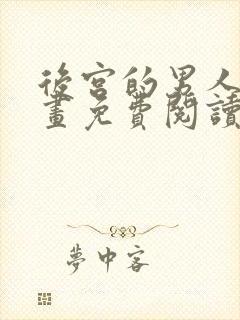 後宮的男人
畫免費閱讀
夢中客